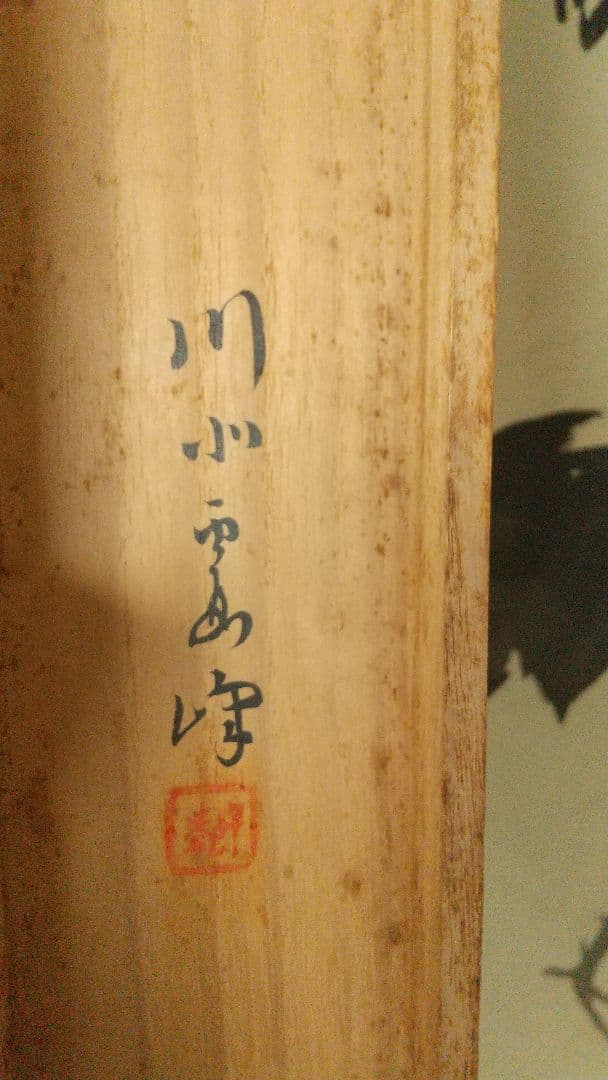 川小雲峰